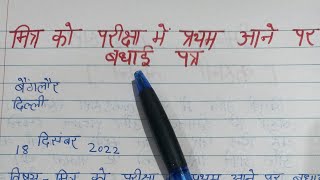 मित्र को परीक्षा में प्रथम आने पर
बधाई पत्र
बैंगलौर
दिल्ली
18 दिसंबर 2022
विषय - मित्र को परीक्षा में प्रथम आने पर बधाई